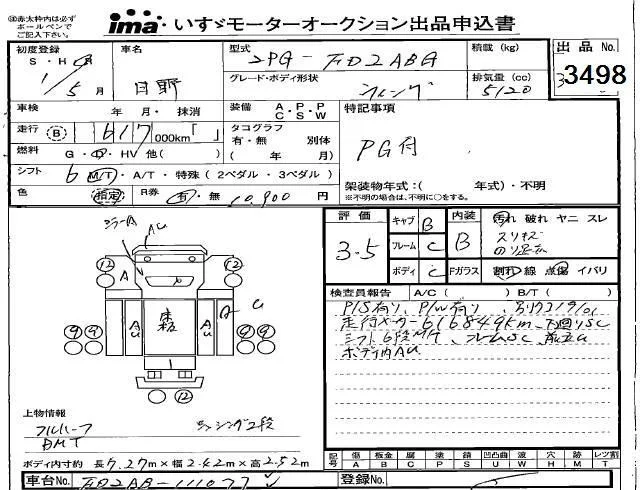 ◎赤太枠内は必ず
ボールペンで
ご記入下さい。
ima いすゞモーターオークション出品申込書
初度登録 車名 型式 2PG-FD2ABG 積載(kg) 出品No.
S・H・R 日野 グレード・ボディ形状 排気量(cc) 3498
1/5月 ウィング 5120
車検 年 月・抹消 装備 A・P・P C・S・W 特記事項
走行 B 617 000km「 」 タコグラフ 有・無 別体 PG付
燃料 G・D・HV 他( ) ( 年 月)
シフト 6 M/T・A/T・特殊(2ペダル・3ペダル) 架装物年式:( 年式)・不明
色 指定 R券 有・無 10,900円 ※不明の場合は、不明に○をする。
評価 3.5 キャブ B 内装 B 汚れ 破れ ヤニ スレ
フレーム C スリキズ
ボディ C Fガラス 割れ 線 点傷 イバリ
検査員報告 A/C( ) B/T( )
P/S有り、P/W有り
走行メーター616849km、下回りSC
シフト6段MT、フレームSC
ボディ内AU
ミラーA AU
12 A 12
9 9 A U 床板 A U A U 9 9
12
上物情報
フルハーフ
DMT
ボディ内寸約 長7.27m×幅2.42m×高2.52m
記号 傷A 板金B 腐食C 塗装P 錆S 凹凸曲U 波W 穴H 跡M レツ割T
車台No. FD2AB-111077 登録No.